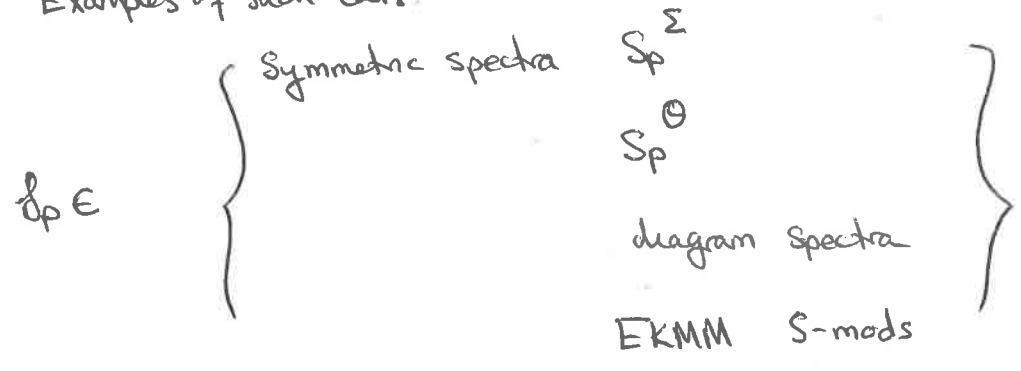 Examples of such
Symmetric spectra Sp^Σ
Sp^Θ
𝒮p ∈
diagram spectra
EKMM S-mods